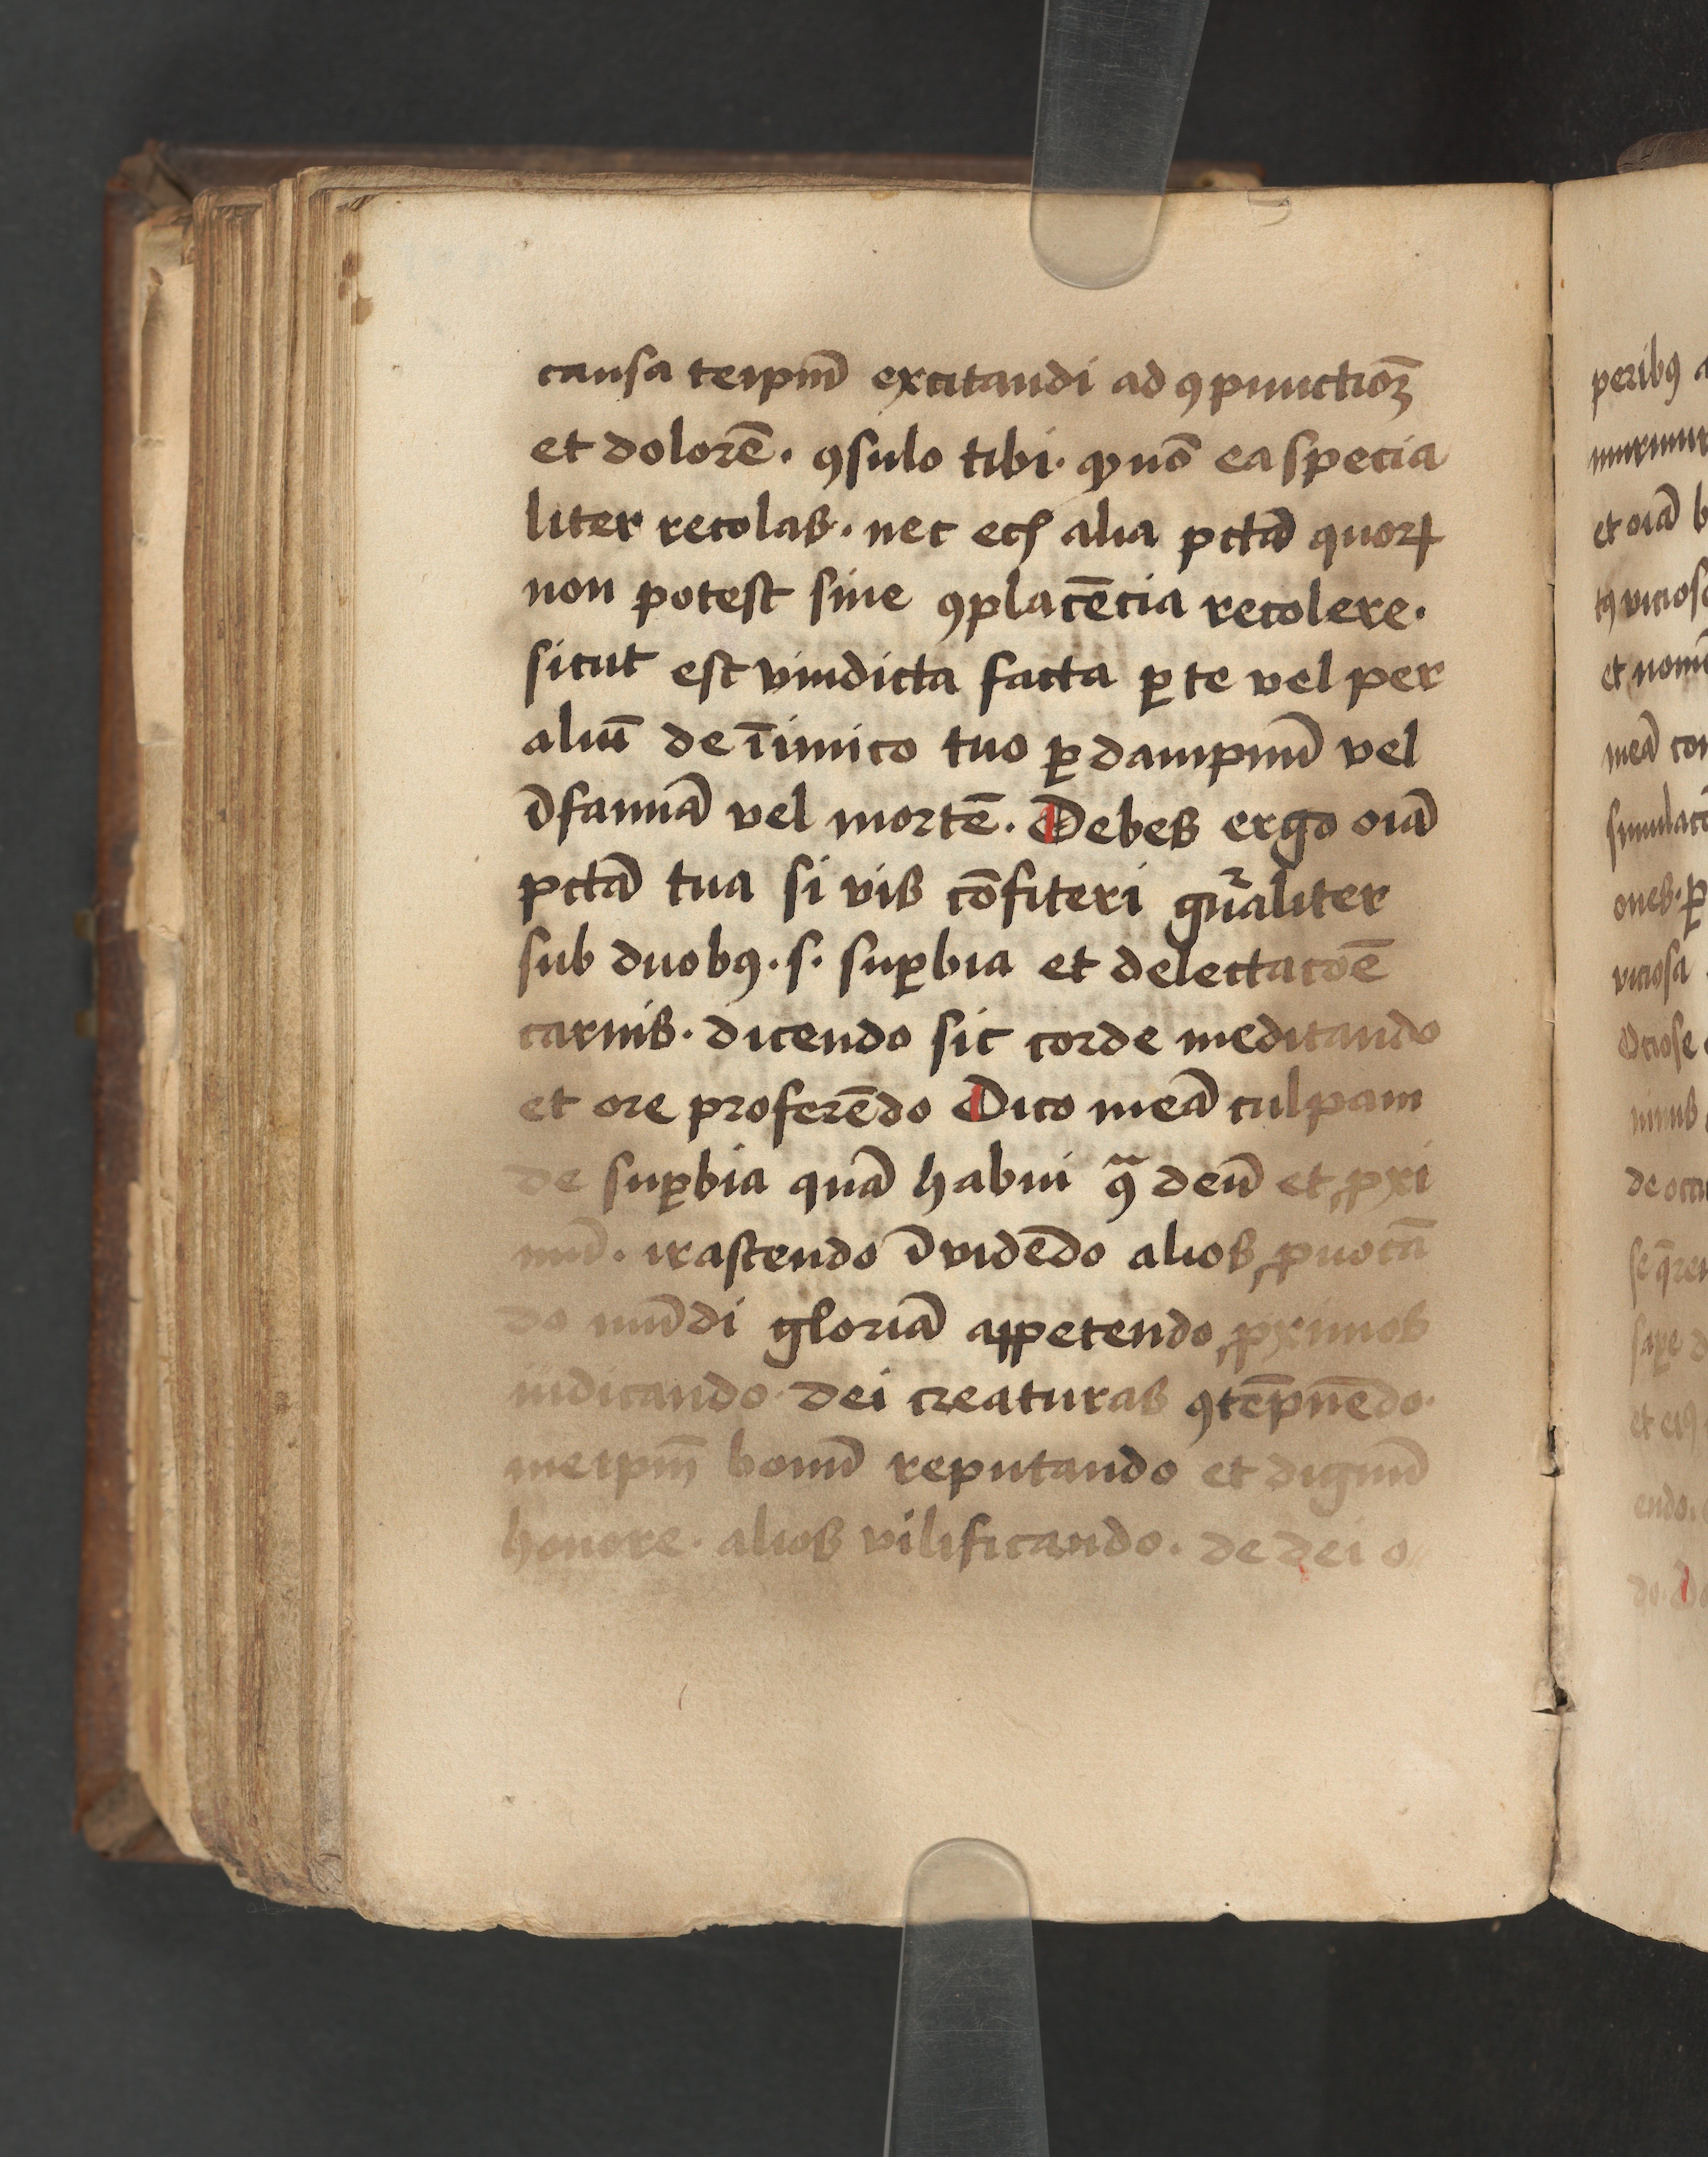 causa teipm̄ excitandi ad ꝯpunctioꝫ
et dolorē. ꝯsulo tibi. ꝙ nō ea specia
liter recolas. nec ecī alia pctā quoꝝ
non potest sine ꝯplacēcia recolere.
sicut est vindicta facta ꝑ te vel per
aliū de īimico tuo ꝑ dampnū vel
ī̄famiā vel mortē. Debes ergo oīa
pctā tua si vis cōfiteri gn̄aliter
sub duobꝰ. s. suꝑbia et delectacōē
carnis. dicendo sic corde meditando
et ore proferēdo Dico meā culpam
de suꝑbia quā habui ꝯͣ deū et ꝓxi
mū. irascendo īvidēdo alios ꝓuocā
do mūdi gloriā appetendo ꝓximos
iudicando. dei creaturas ꝯtēpnēdo.
meipm̄ bonū reputando et dignū
honore. alios vilificando. de dei o
peribꝰ
et oīa
et
meā
simulacō
ones. ꝑ
viciosa
Ociose
de
endo.
do.